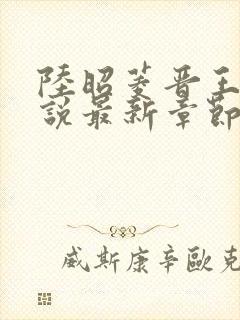 陸昭菱晋王
說最新章節
威斯康辛歐克